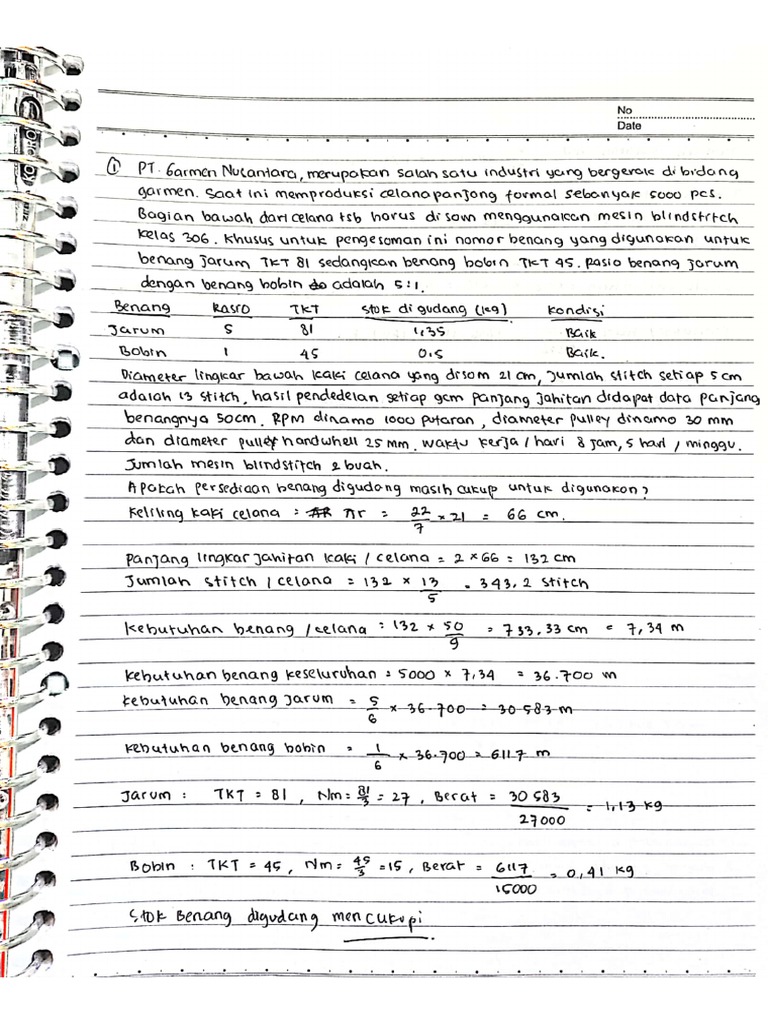 No
Date
① PT. Garmen Nusantara, merupakan salah satu industri yang bergerak di bidang
garmen. Saat ini memproduksi celana panjang formal sebanyak 5000 pcs.
Bagian bawah dari celana tsb harus di som menggunakan mesin blindstitch
kelas 306. Khusus untuk pengesoman ini nomor benang yang digunakan untuk
benang jarum TKT 81 sedangkan benang bobin TKT 45. Rasio benang jarum
dengan benang bobin adalah 5:1.
Benang Rasio TKT Stok di gudang (kg) Kondisi
Jarum 5 81 1,35 Baik
Bobin 1 45 0.5 Baik.
Diameter lingkar bawah kaki celana yang disom 21 cm, Jumlah stitch setiap 5 cm
adalah 13 stitch, hasil pendedelan setiap 9cm panjang jahitan didapat data panjang
benangnya 50cm. RPM dinamo 1000 putaran, diameter pulley dinamo 30 mm
dan diameter pulley handwhell 25 mm. Waktu kerja / hari 8 jam, 5 hari / minggu.
Jumlah mesin blindstitch 2 buah.
Apakah persediaan benang digudang masih cukup untuk digunakan?
Keliling kaki celana : πr = 22/7 x 21 = 66 cm.
Panjang lingkar jahitan kaki / celana = 2 x 66 = 132 cm
Jumlah stitch / celana = 132 x 13/5 = 343,2 stitch
Kebutuhan benang / celana : 132 x 50/9 = 733,33 cm = 7,34 m
Kebutuhan benang keseluruhan = 5000 x 7,34 = 36.700 m
Kebutuhan benang jarum = 5/6 x 36.700 = 30 583 m
Kebutuhan benang bobin = 1/6 x 36.700 = 6117 m
Jarum : TKT = 81, Nm = 81/3 = 27, Berat = 30 583/27000 = 1,13 kg
Bobin : TKT = 45, Nm = 45/3 = 15, Berat = 6117/15000 = 0,41 kg
Stok Benang digudang mencukupi